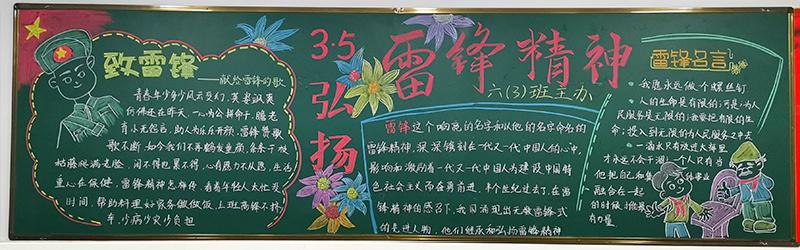 致雷锋
——献给雷锋的歌
青春年少多少风云变幻,英姿飒爽
仿佛还在昨天,一心为公拼命干,瞻老
育小无怨言,助人为乐乐开颜,雷锋赞歌
歌不断,如今我们不再鹤发童颜,
枯藤爬满老脸,闲不得也累不得,心有愿力不从愿,生活
重心在保健,雷锋精神怎伸
时间,帮助料理好家务做做饭,上班高峰不挤
车,少病少灾少负担
3·5
弘扬
雷锋精神
六(3)班主办
雷锋这个响亮的名字和以他的名字命名的
雷锋精神,深深镌刻在一代又一代中国人的心中,
影响和激励着一代又一代中国人为建设中国特
色社会主义而奋勇前进,半个世纪过去了,在雷
锋精神的感召下,我国涌现出无数雷锋式
的先进人物,他们继承和弘扬雷锋精神
雷锋名言
我愿永远做个螺丝钉
人的生命是有限的,可是,为人
民服务是无限的,我要把有限的生
命,投入到无限的为人民服务之中去
一滴水只有放进大海里
才永远不会干涸,一个人只有当
他把自己和集体事业
融合在一起
的时候才能最
有力量